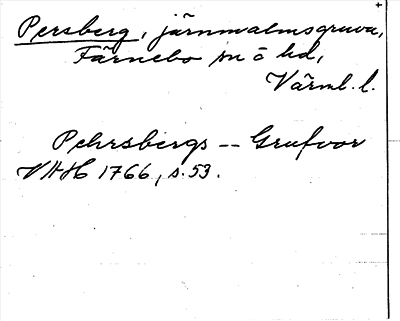 Persberg, järnmalmsgruva,
Färnebo sn o hd,
Värml. l.
Pehrsbergs -- Grufvor
VAH 1766, s. 53.